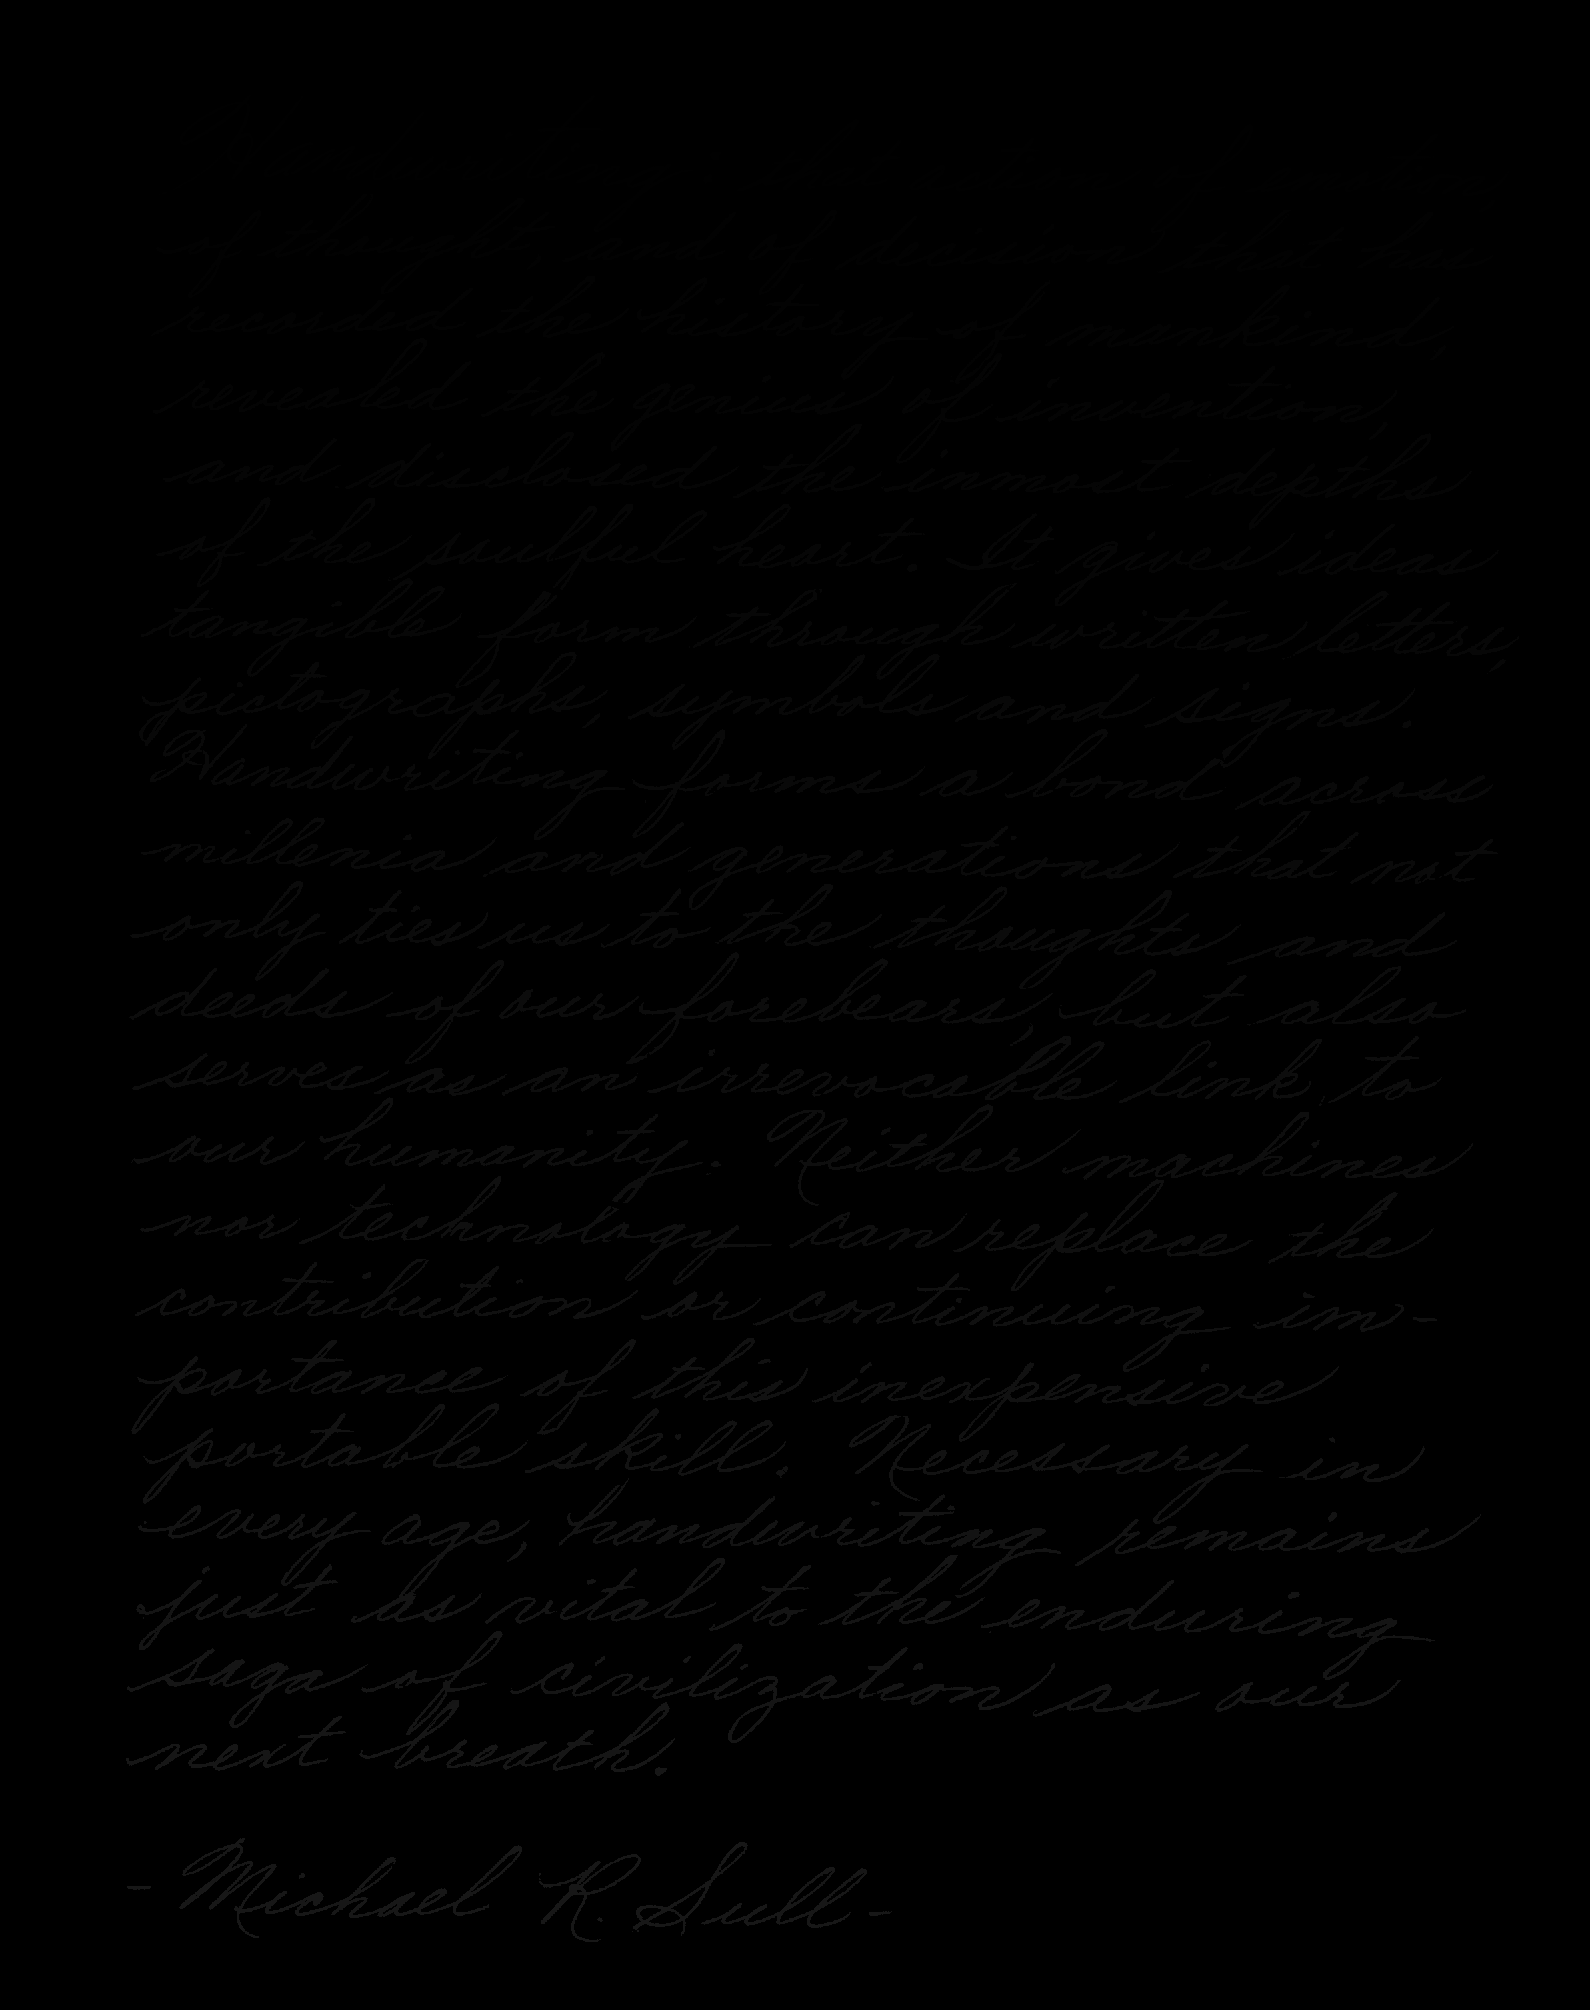 of thought, and of decision that has
recorded the history of mankind,
revealed the genius of invention,
and disclosed the inmost depths
of the soulful heart. It gives ideas
tangible form through written letters,
pictographs, symbols and signs.
Handwriting forms a bond across
millenia and generations that not
only ties us to the thoughts and
deeds of our forebears, but also
serves as an irrevocable link to
our humanity. Neither machines
nor technology can replace the
contribution or continuing im-
portance of this inexpensive
portable skill. Necessary in
every age, handwriting remains
just as vital to the enduring
saga of civilization as our
next breath.
- Michael R. Sull -